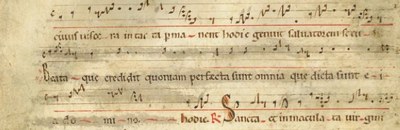 cuius uiscera intacta permanent hodie genuit saluatorem seculi
Beata que credidit quoniam perfecta sunt omnia que dicta sunt ei
a do mi no hodie R Sancta et inmacula ta uirgini